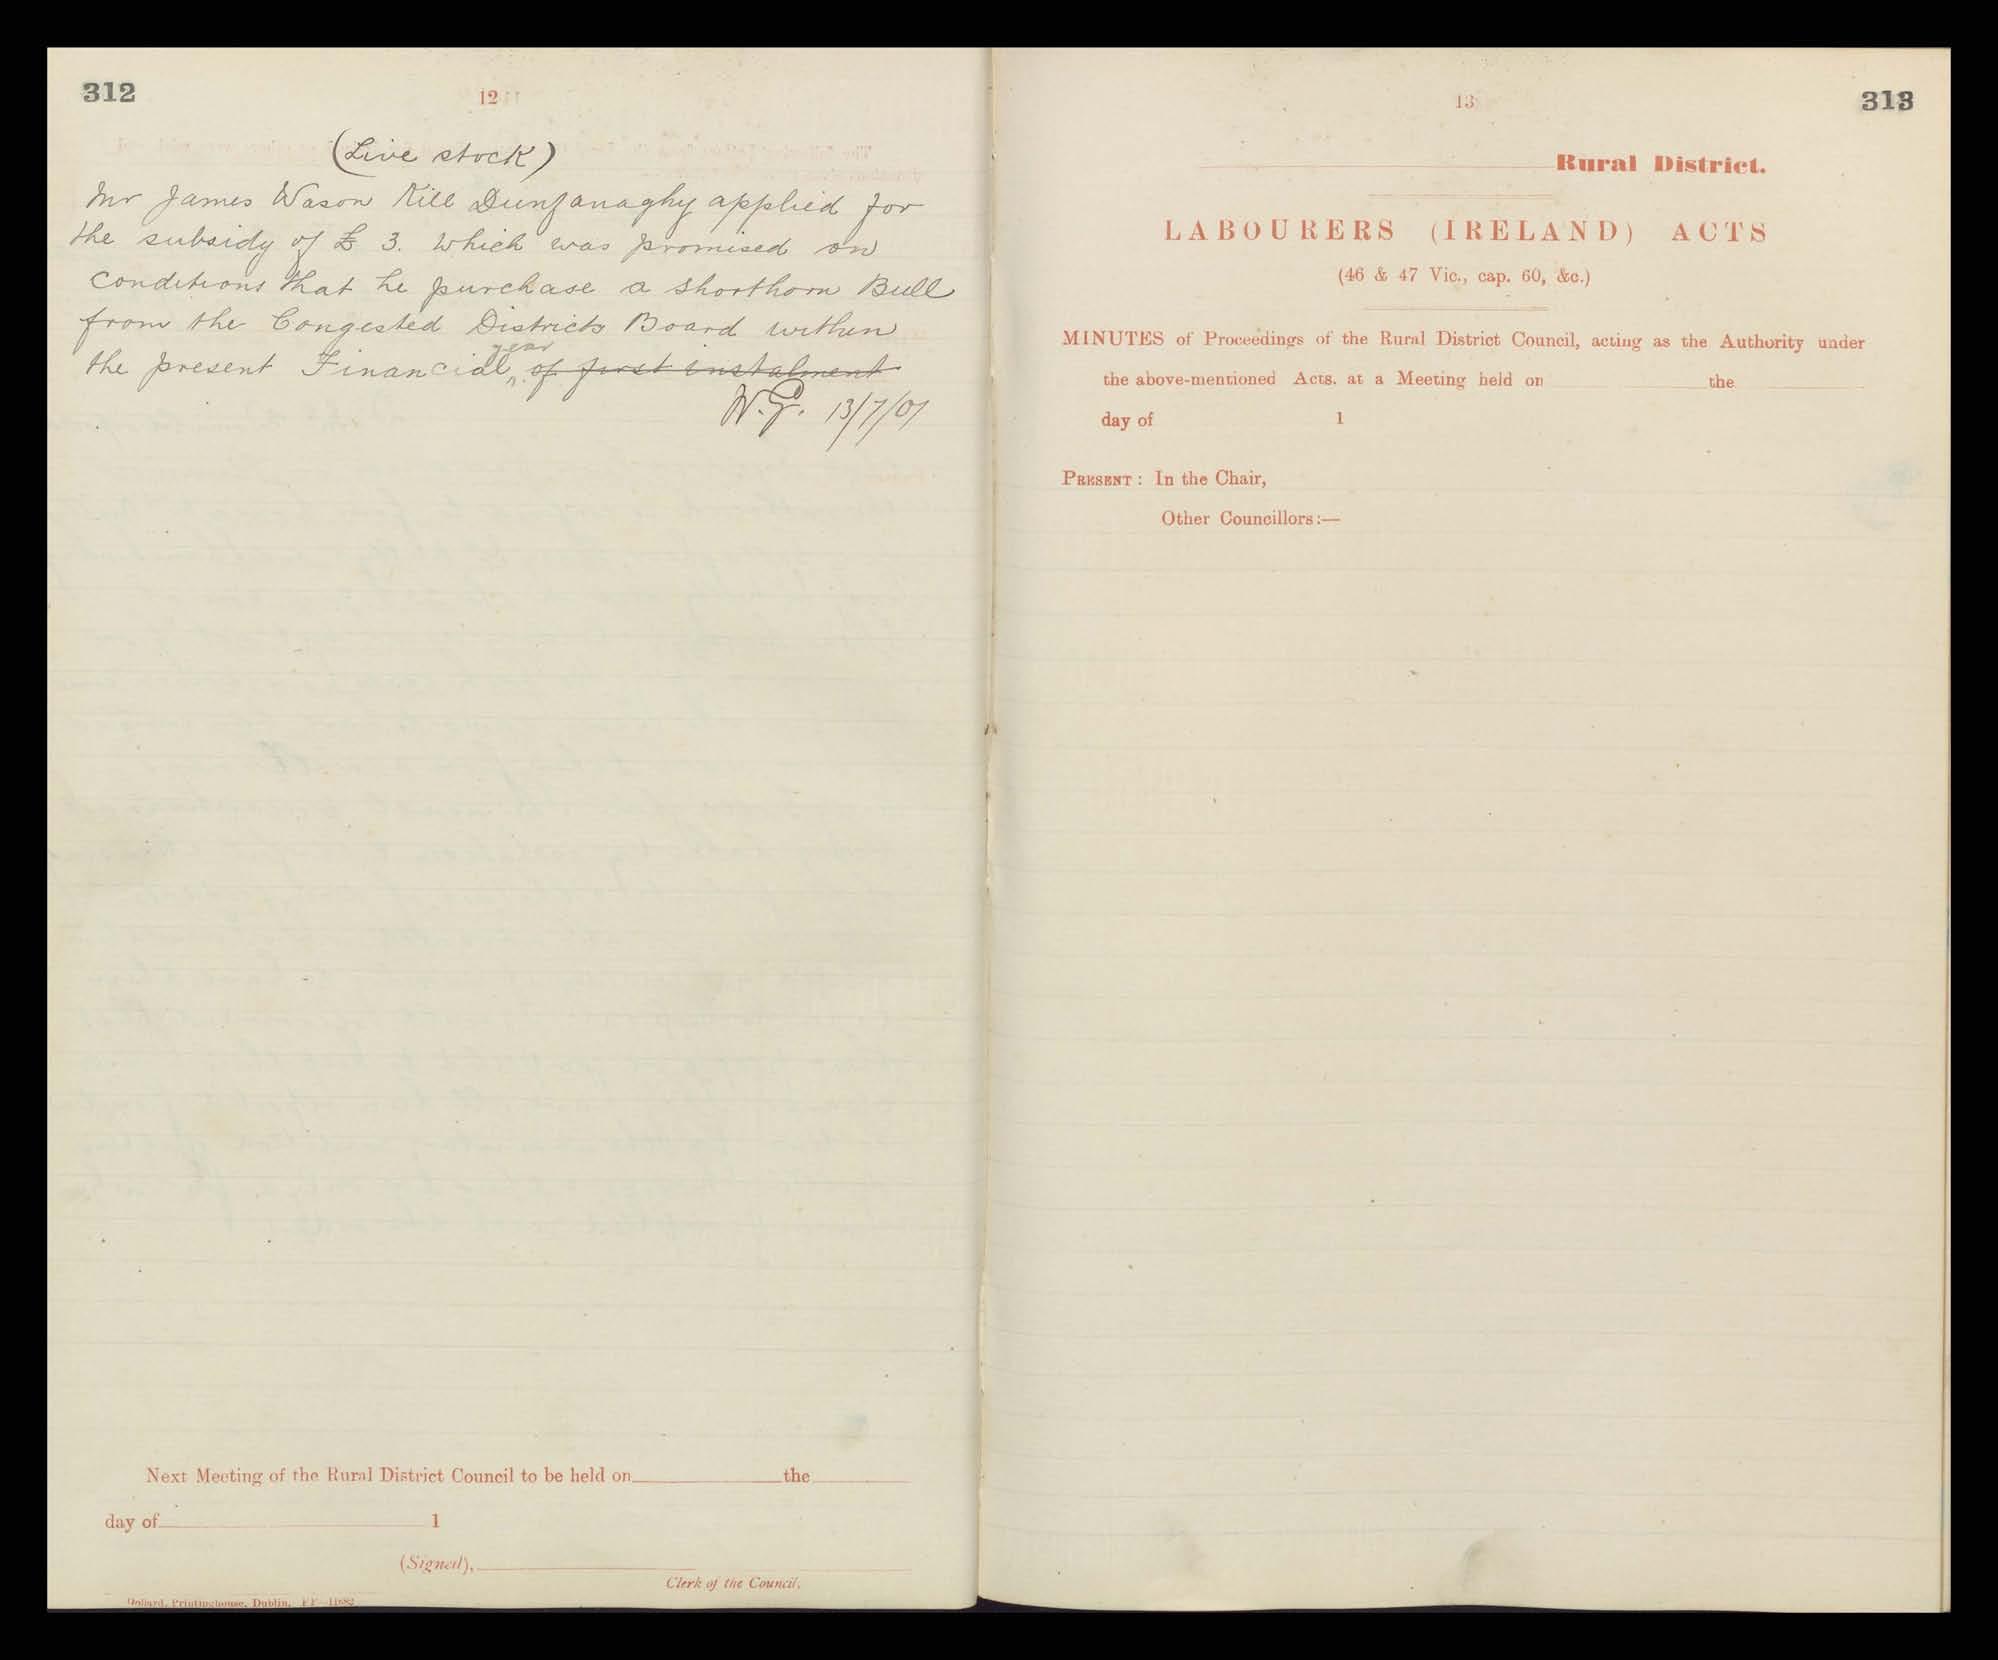 312
12
(Live stock)
Mr James Wason Kill Dunfanaghy applied for
the subsidy of £ 3. which was promised on
conditions that he purchase a shorthorn Bull
from the Congested Districts Board within
year
the present Financial of first instalment
W.G. 13/7/01
Next Meeting of the Rural District Council to be held on the
day of 1
(Signed),
Clerk of the Council.
Dollard, Printinghouse, Dublin. FF-11682
13
313
Rural District.
LABOURERS (IRELAND) ACTS
(46 & 47 Vic., cap. 60, &c.)
MINUTES of Proceedings of the Rural District Council, acting as the Authority under
the above-mentioned Acts. at a Meeting held on the
day of 1
PRESENT : In the Chair,
Other Councillors:—